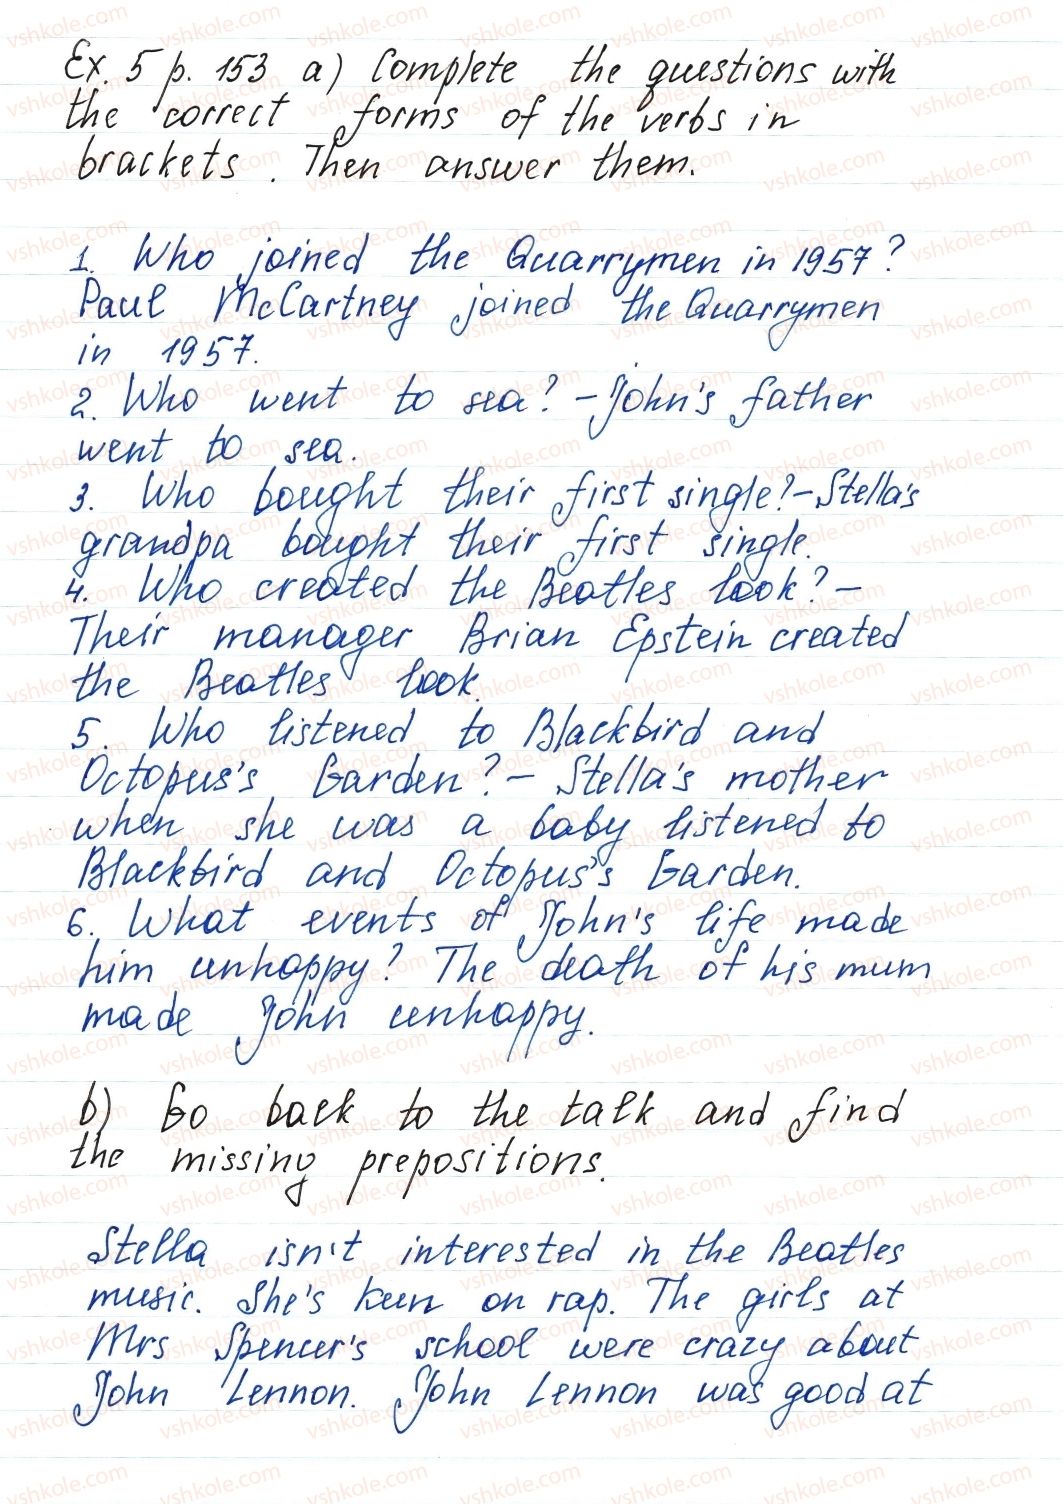 Ex. 5 p. 153 a) Complete the questions with
the correct forms of the verbs in
brackets. Then answer them.
1. Who joined the Quarrymen in 1957?
Paul McCartney joined the Quarrymen
in 1957.
2. Who went to sea? - John's father
went to sea.
3. Who bought their first single? - Stella's
grandpa bought their first single.
4. Who created the Beatles look? -
Their manager Brian Epstein created
the Beatles look.
5. Who listened to Blackbird and
Octopus's Garden? - Stella's mother
when she was a baby listened to
Blackbird and Octopus's Garden.
6. What events of John's life made
him unhappy? The death of his mum
made John unhappy.
b) Go back to the talk and find
the missing prepositions.
Stella isn't interested in the Beatles
music. She's keen on rap. The girls at
Mrs Spencer's school were crazy about
John Lennon. John Lennon was good at